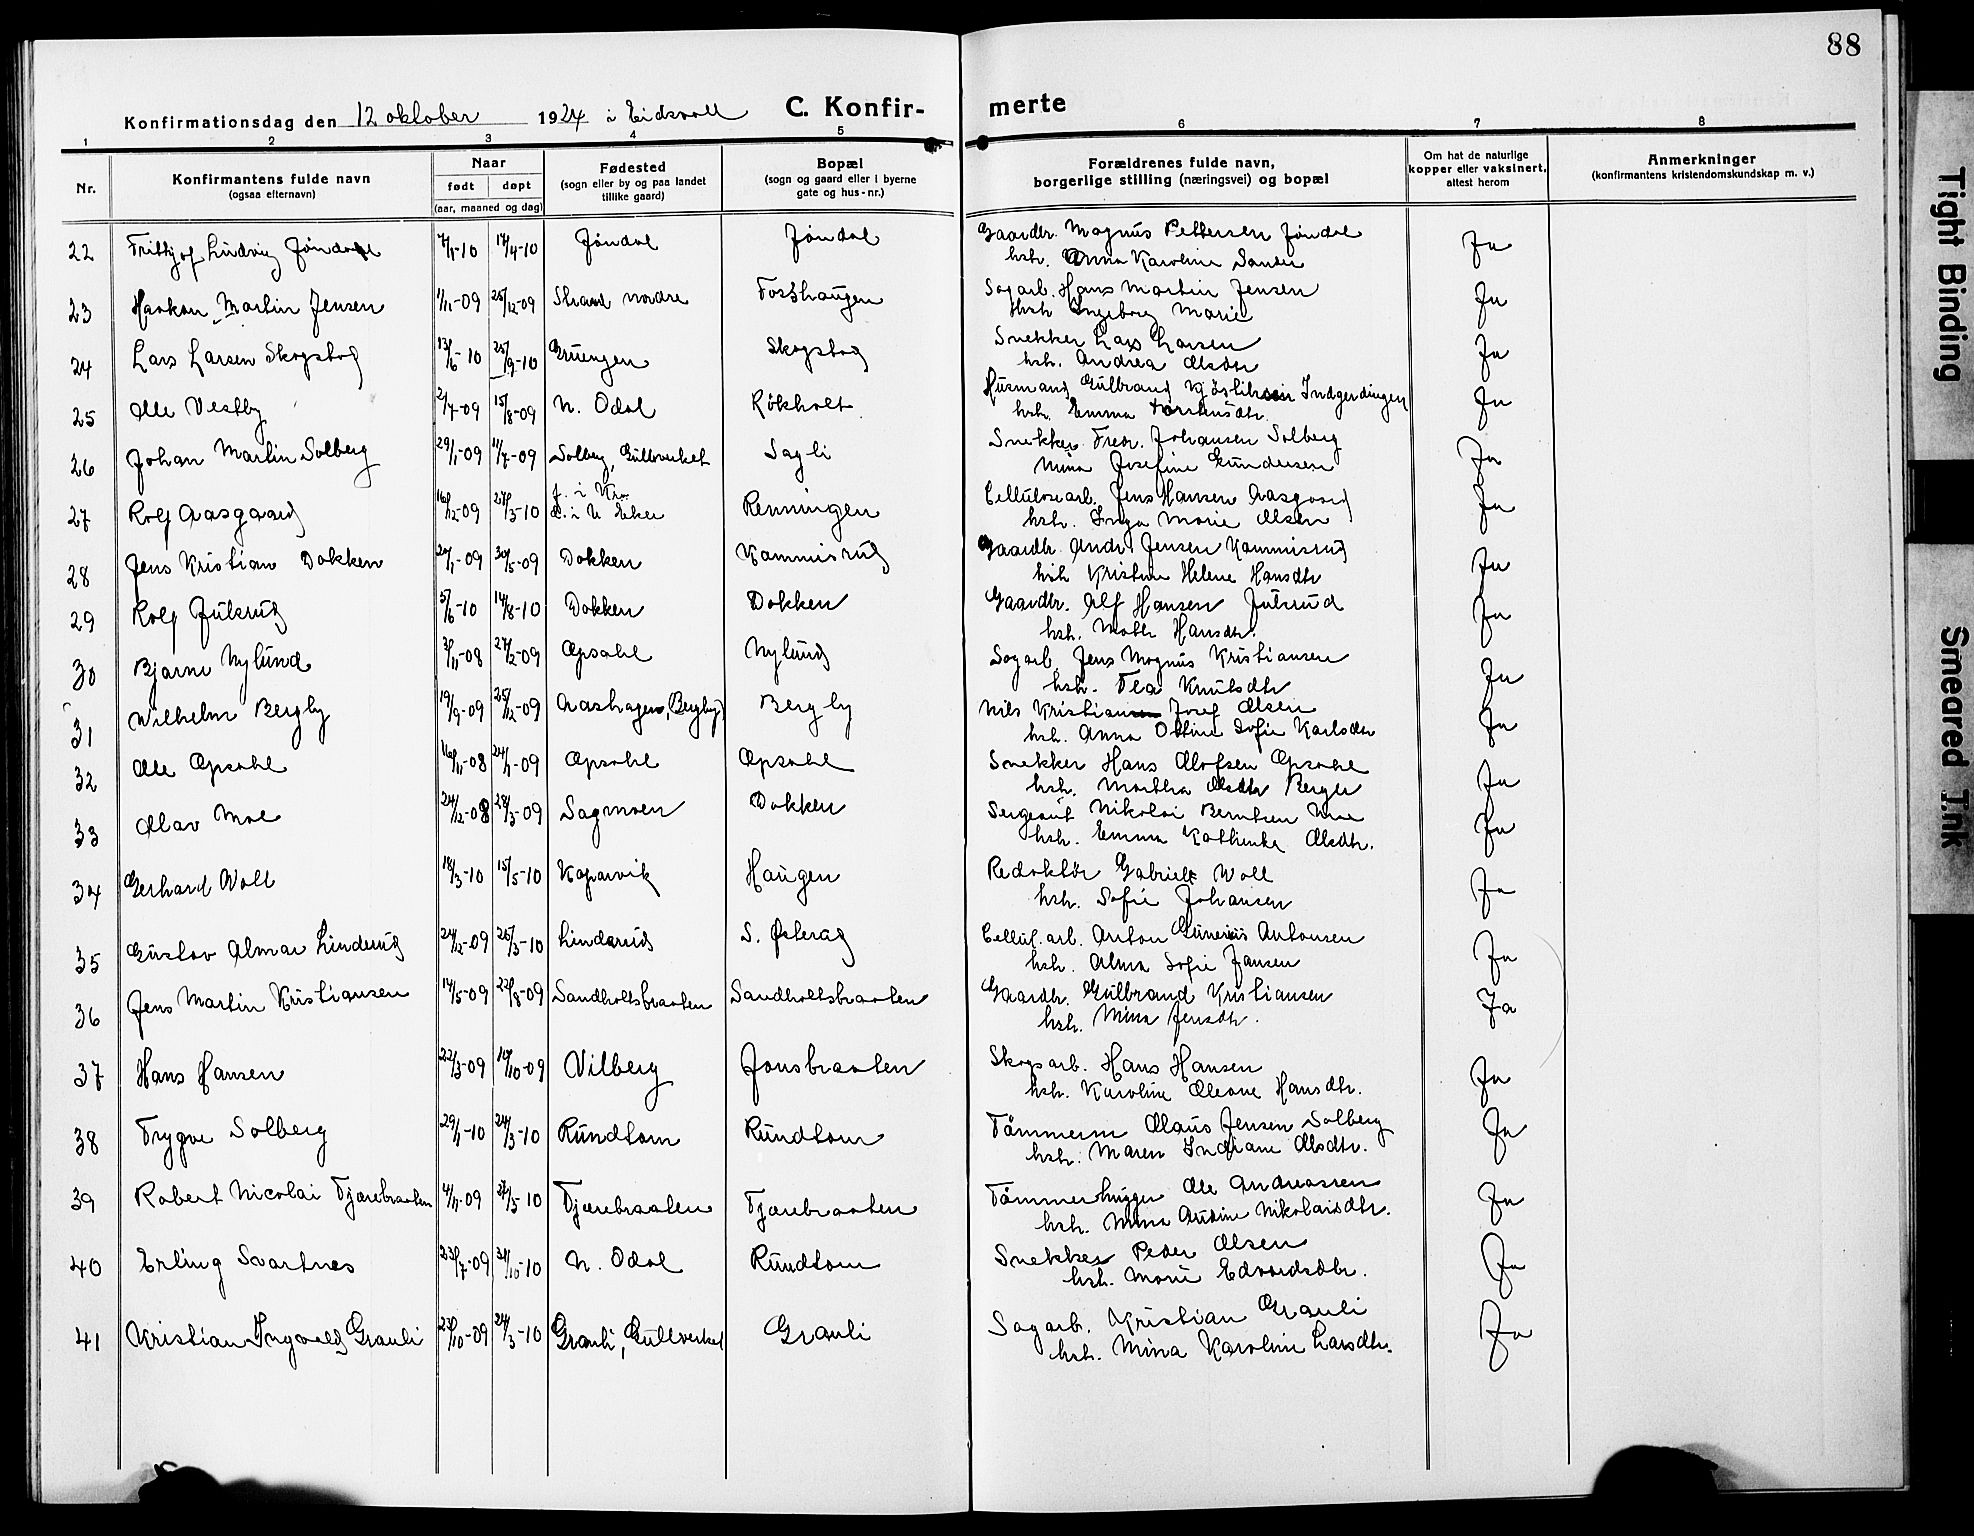 88
Konfirmationsdag den 12 oktober 1924 i Eidsvoll C. Konfir- merte
1 2 3 4 5 6 7 8
Nr. Konfirmantens fulde navn (ogsaa efternavn) Naar født døpt (aar, maaned og dag) Fødested (sogn eller by og paa landet tillike gaard) Bopæl (sogn og gaard eller i byerne gate og hus-nr.) Forældrenes fulde navn, borgerlige stilling (næringsvei) og bopæl Om hat de naturlige kopper eller vaksinert, attest herom Anmerkninger (konfirmantens kristendomskundskap m. v.)
22 Frithjof Ludvig Jøndahl 7/1-10 17/4-10 Jøndal Jøndal Gaardbr. Magnus Pettersen Jøndal Ja
hstr. Anna Karoline
23 Haakon Martin Jensen 1/11-09 26/12-09 Strand nordre Fosshaugen Sagarb. Hans Martin Jensen Ja
Hstr Ingeborg Marie
24 Lars Larsen Skogstad 13/6-10 25/9-10 Skogstad Snekker Lars Larsen Ja
hstr. Andrea Olsdtr
25 Ole Vestby 2/7-09 15/8-09 N. Odal Rökholt Husmand Gulbrand Ja
hstr. Emma
26 Johan Martin Solberg 29/1-09 11/7-09 Solberg, Gullverket Sagli Snekker Fredr. Johansen Solberg Ja
Mina Josefine Gundersen
27 Rolf Aasgaard 16/12-09 27/3-10 f. i Kra. Renningen Cellulosearb. Jens Hansen Aasgaard Ja
d. i N. Eker hstr. Inga Marie Olsen
28 Jens Kristian Dokken 20/1-09 30/5-09 Dokken Kammisrud Gaardbr. Andr. Jensen Kammisrud Ja
hstr Kristine Helene Hansdtr
29 Rolf Julsrud 5/6-10 14/8-10 Dokken Dokken Gaardbr. Alf Hansen Julsrud Ja
hstr. Mathe Hansdtr.
30 Bjarne Nylund 3/11-08 27/2-09 Opsahl Nylund Sagarb. Jens Magnus Kristiansen Ja
hstr. Tea Knutsdtr
31 Wilhelm Bergby 19/9-09 25/12-09 Aashagen, (Bergby) Bergby Nils Kristiansen Josef Olsen Ja
hstr. Anna Otline Sofie Karlsdtr
32 Ole Opsahl 16/11-08 24/1-09 Opsahl Opsahl Snekker Hans Olofsen Opsahl Ja
hstr. Martha Olsdtr Berger
33 Olav Moe 24/12-08 28/3-09 Sagmoen Dokken Sergeant Nikolai Berntsen Moe Ja
hstr. Emma Kathinka Olsdtr.
34 Gerhard Woll 18/3-10 15/5-10 Kopervik Haugen Redaktör Gabriel Woll Ja
hstr. Sofie Johansen
35 Gustav Almar Linderud 24/12-09 26/3-10 Linderud S. Østerud Cellul. arb. Anton Gunerius Antonsen Ja
hstr. Alma Sofie Jansen
36 Jens Martin Kristiansen 14/5-09 22/8-09 Sandholtsbraaten Sandholtsbraaten Gaardbr. Gulbrand Kristiansen Ja
hstr. Mina Jensdtr.
37 Hans Hansen 22/3-09 10/10-09 Vilberg Jonsbraaten Skogsarb. Hans Hansen Ja
hstr. Karoline Oleane Hansdtr.
38 Trygve Solberg 29/1-10 24/3-10 Rundtom Rundtom Tömmerm Olaus Jensen Solberg Ja
hstr. Maren Indiane Olsdtr.
39 Robert Nicolai Tjærebraaten 4/11-09 27/3-10 Tjærebraaten Tjærebraaten Tömmerhugger Ole Andreassen Ja
hstr. Mina Nikolaisdtr.
40 Erling Svartnes 23/7-09 31/10-10 N. Odal Rundtom Snekker Peder Olsen Ja
hstr. Marie Edvardsdtr.
41 Kristian Ingvald Grauli 23/10-09 24/3-10 Grauli, Gullverket Grauli Sagarb. Kristian Grauli Ja
hstr. Mina Karoline Larsdtr.
Tight Binding
Smeared Ink